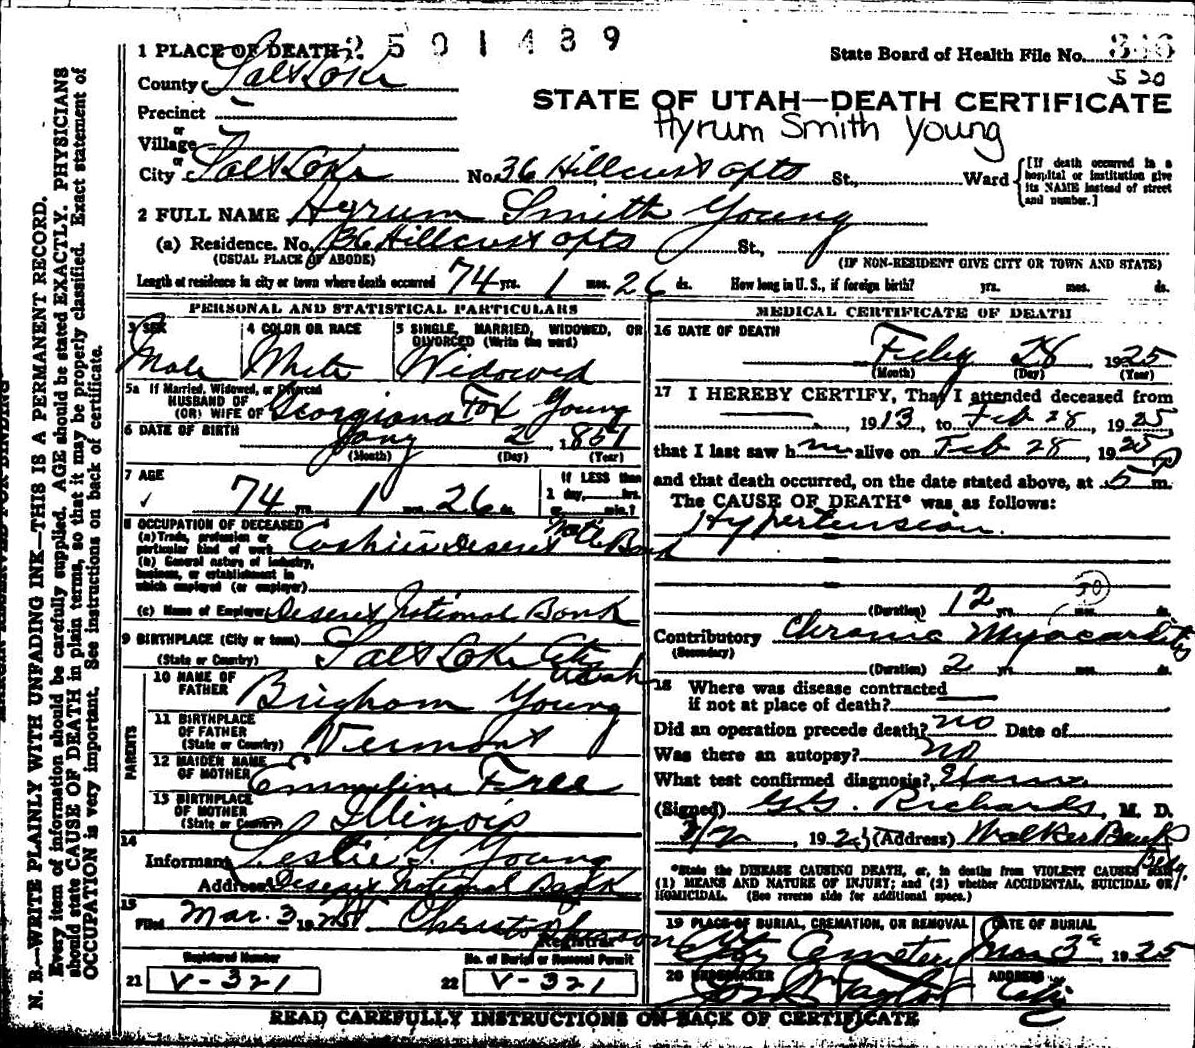 2501489
1 PLACE OF DEATH
State Board of Health File No.
County Salt Lake
5 20
STATE OF UTAH—DEATH CERTIFICATE
Hyrum Smith Young
Precinct
or
Village
or
City Salt Lake No. 36 Hillcrest apts St., Ward
[If death occurred in a hospital or institution give its NAME instead of street and number.]
2 FULL NAME Hyrum Smith Young
(a) Residence. No. 36 Hillcrest apts St.,
(USUAL PLACE OF ABODE) (IF NON-RESIDENT GIVE CITY OR TOWN AND STATE)
Length of residence in city or town where death occurred 74 yrs. 1 mos. 26 ds. How long in U. S., if foreign birth? yrs. mos. ds.
PERSONAL AND STATISTICAL PARTICULARS
3 SEX
Male
4 COLOR OR RACE
White
5 SINGLE, MARRIED, WIDOWED, OR DIVORCED (Write the word)
Widowed
5a If Married, Widowed, or Divorced
HUSBAND OF
(OR) WIFE OF Georgiana Fox Young
6 DATE OF BIRTH Jany 2 1851
(Month) (Day) (Year)
7 AGE
74 1 mos. 26 ds.
If LESS than
1 day, hrs.
or min.?
8 OCCUPATION OF DECEASED
(a) Trade, profession or
particular kind of work Cashier Deseret Natl Bank
(b) General nature of industry,
business, or establishment in
which employed (or employer)
(c) Name of Employer Deseret National Bank
9 BIRTHPLACE (City or town) Salt Lake City
(State or Country) Utah
PARENTS
10 NAME OF FATHER Brigham Young
11 BIRTHPLACE OF FATHER (State or Country) Vermont
12 MAIDEN NAME OF MOTHER Emmeline Free
13 BIRTHPLACE OF MOTHER (State or Country) Illinois
14
Informant Leslie G. Young
Address Deseret National Bank
15
Filed Mar. 3 1925
Registrar
Registered Number
21 V-321
No. of Burial or Removal Permit
22 V-321
MEDICAL CERTIFICATE OF DEATH
16 DATE OF DEATH
Feby 28 1925
(Month) (Day) (Year)
17 I HEREBY CERTIFY, That I attended deceased from
, 1913, to Feb 28, 1925,
that I last saw h m alive on Feb 28, 1925
and that death occurred, on the date stated above, at 5 P m.
The CAUSE OF DEATH* was as follows:
Hypertension
(Duration) 12 yrs. mos. ds.
Contributory Chronic Myocarditis
(Secondary)
(Duration) 2 yrs. mos. ds.
18 Where was disease contracted
if not at place of death?
Did an operation precede death? no Date of
Was there an autopsy? no
What test confirmed diagnosis?
(Signed) G.G. Richards, M. D.
, 192 (Address) Walker Bank Bldg.
*State the DISEASE CAUSING DEATH, or, in deaths from VIOLENT CAUSES state
(1) MEANS AND NATURE OF INJURY; and (2) whether ACCIDENTAL, SUICIDAL OR
HOMICIDAL. (See reverse side for additional space.)
19 PLACE OF BURIAL, CREMATION, OR REMOVAL
City Cemetery
DATE OF BURIAL
Mar 3 1925
20 UNDERTAKER
Taylor
ADDRESS
City
READ CAREFULLY INSTRUCTIONS ON BACK OF CERTIFICATE
N. B.—WRITE PLAINLY WITH UNFADING INK—THIS IS A PERMANENT RECORD.
Every item of information should be carefully supplied. AGE should be stated EXACTLY. PHYSICIANS
should state CAUSE OF DEATH in plain terms, so that it may be properly classified. Exact statement of
OCCUPATION is very important. See instructions on back of certificate.